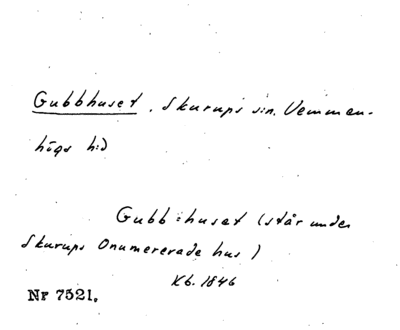 Gubbhuset, Skurups sn. Vemmen-
högs hd
Gubb=huset (står under
Skurups Onumererade hus)
Kb. 1846
Nr 7521.